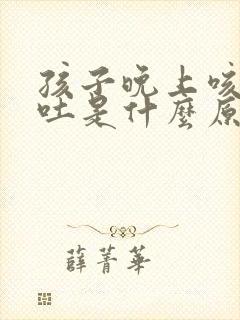 孩子晚上咳
吐是什麼原
薛菁華